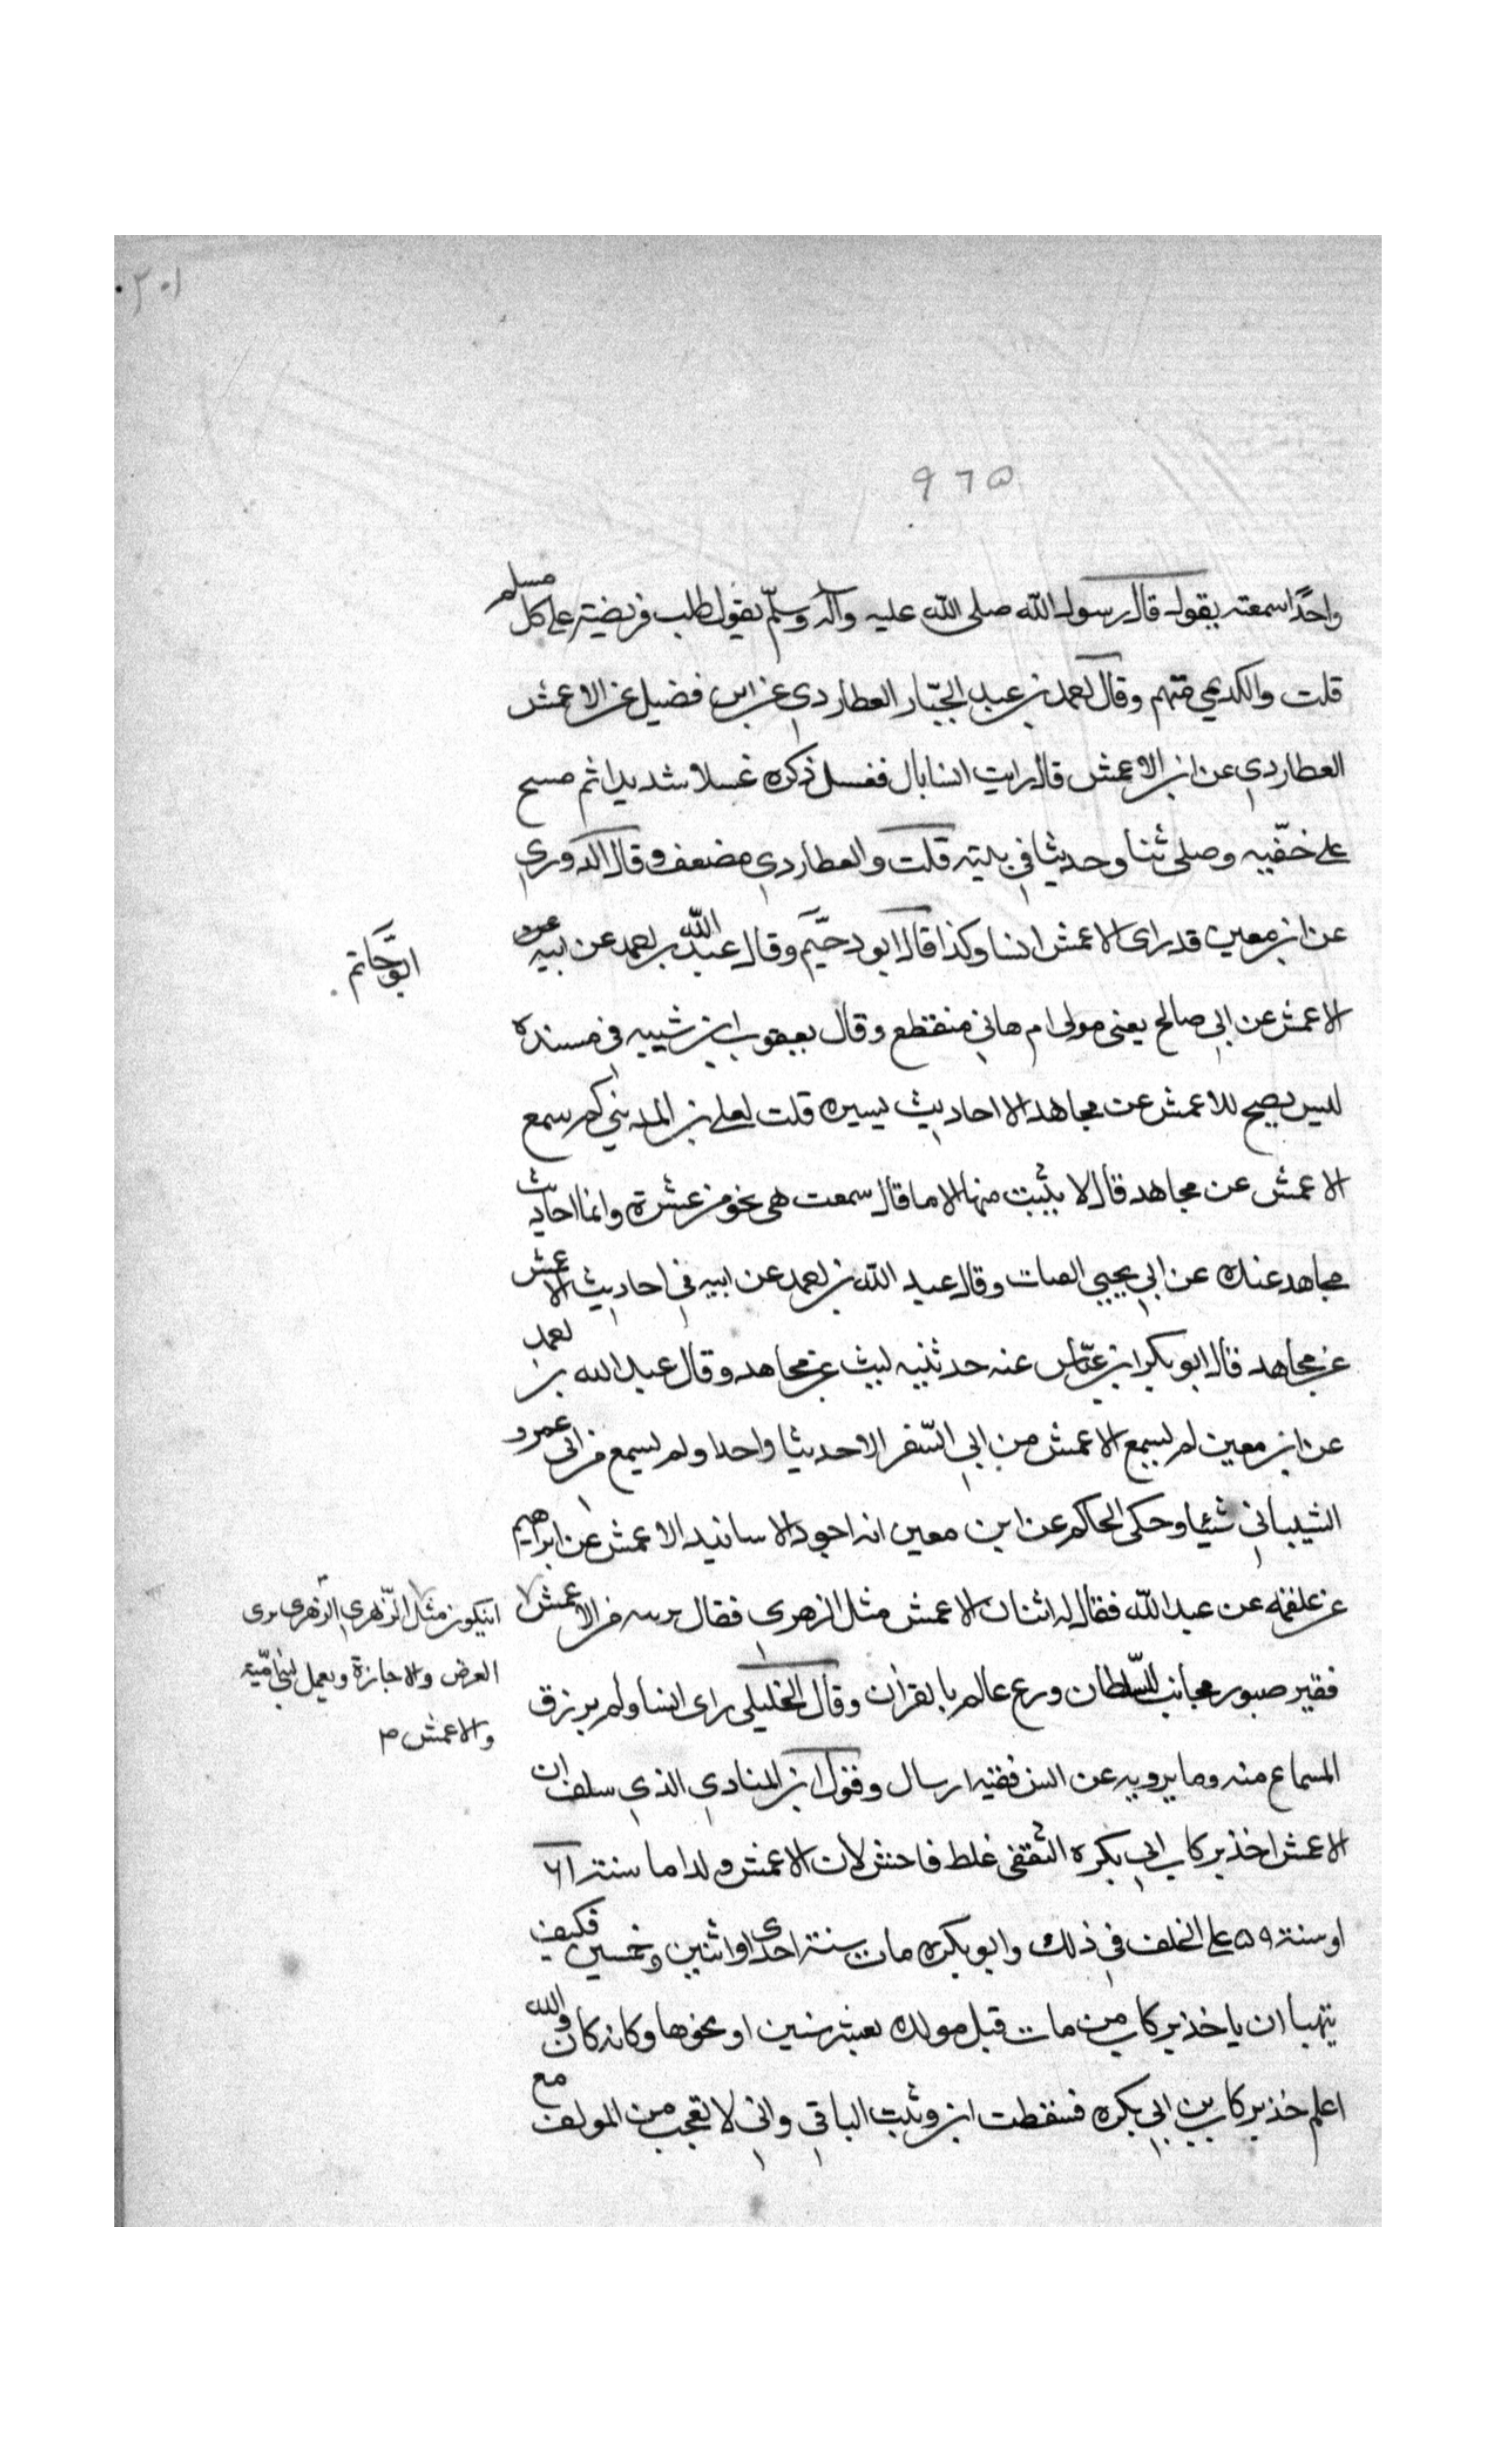 ٢٠١
٩٦٥
واحدًا سمعته يقول قال رسول الله صلى الله عليه وآله وسلّم يقول طلب فريضة على كل مسلم
قلت والكديمي متهم وقال احمد بن عبد الجبّار العطاردي عن ابن فضيل عن الاعمش
العطاردي عن ابن الاعمش قال رايت انسا بال فغسل ذكره غسلا شديدا ثم مسح
على خفّيه وصلى ثنا وحديثا في بيته قلت والعطاردي مضعف وقال الدوري
عن ابن معين قد راى الاعمش انسا وكذا قال ابو دحيم وقال عبد الله بن احمد عن ابيه
ابو حاتم
الاعمش عن ابي صالح يعنى مولى ام هاني منقطع وقال يعقوب ابن شيبه في مسنده
ليس يصح للاعمش عن مجاهد الا احاديث يسيره قلت لعلى بن المديني كم سمع
الاعمش عن مجاهد قال لا يثبت منها الا ما قال سمعت هى نحو من عشرة وانما احاديث
مجاهد عنده عن ابي يحيي القتات وقال عبد الله بن احمد عن ابيه في احاديث الاعمش
عن مجاهد قال ابو بكر ابن عيّاش عنه حدثنيه ليث عن مجاهد وقال عبد الله بن احمد
عن ابن معين لم يسمع الاعمش من ابي السّفر الا حديثا واحدا ولم يسمع من ابى عمرو
الشيباني شيئا وحكى الحاكم عن ابن معين انه اجود الاسانيد الاعمش عن ابراهيم
عن علقمه عن عبد الله فقال له اثنان الاعمش مثل الزهرى فقال من الاعمش
ان يكون مثل الزّهري الزهرى يرى
العرض والاجازة ويعمل لبني اميّة
والاعمش م
فقير صبور مجانب للسّلطان ورع عالم بالقران وقال الخليلى راى انسا ولم يرزق
السماع منه وما يرويه عن انس ففيه ارسال وقول ابن المنادي الذي سلف ان
الاعمش اخذ بركاب ابي بكره الثقفى غلط فاحش لان الاعمش ولد اما سنة ٦١
او سنة ٥٩ على الخلف في ذلك وابو بكره مات سنة احدى او اثنين وخمسين فكيف
يتهيا ان ياخذ بركاب من مات قبل مولده بعشر سنين او نحوها وكانه كان والله
اعلم خذ بركاب بن ابي بكره فسقطت ابن وثبت الباقي واني لا تعجب من المولف مع